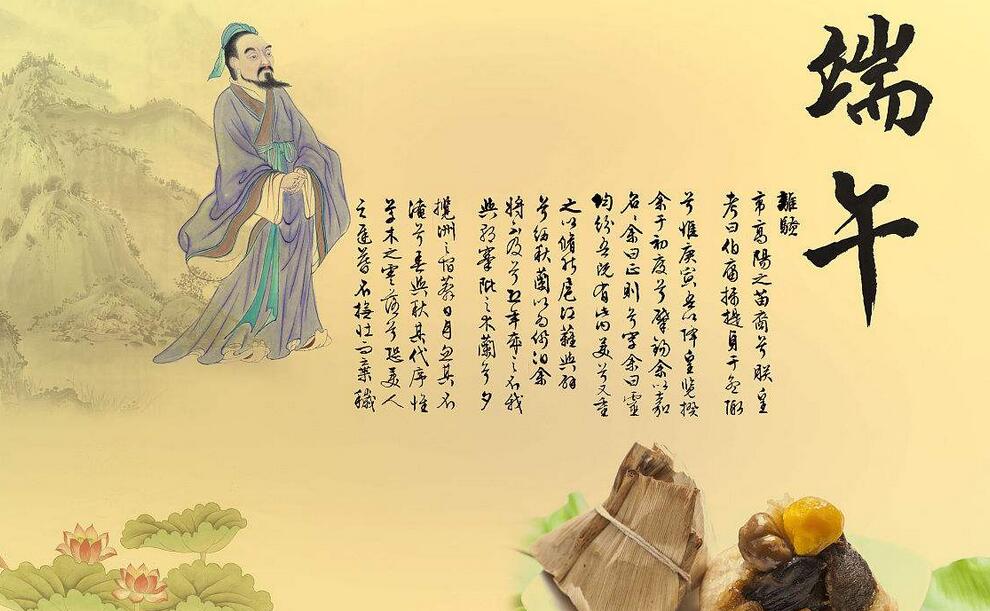 端午
離騷
帝高陽之苗裔兮朕皇
考曰伯庸攝提貞于孟陬
兮惟庚寅吾以降皇覽揆
余于初度兮肇錫余以嘉
名余曰正則兮字余曰靈
均紛吾既有此內美兮又重
之以脩能扈江蘺與辟
兮紉秋蘭以為佩汩余
將不及兮恐年歲之不我
與朝搴阰之木蘭兮夕
攬洲之宿莽日月忽其不
淹兮春與秋其代序惟
草木之零落兮恐美人
之遲暮不撫壯而棄穢